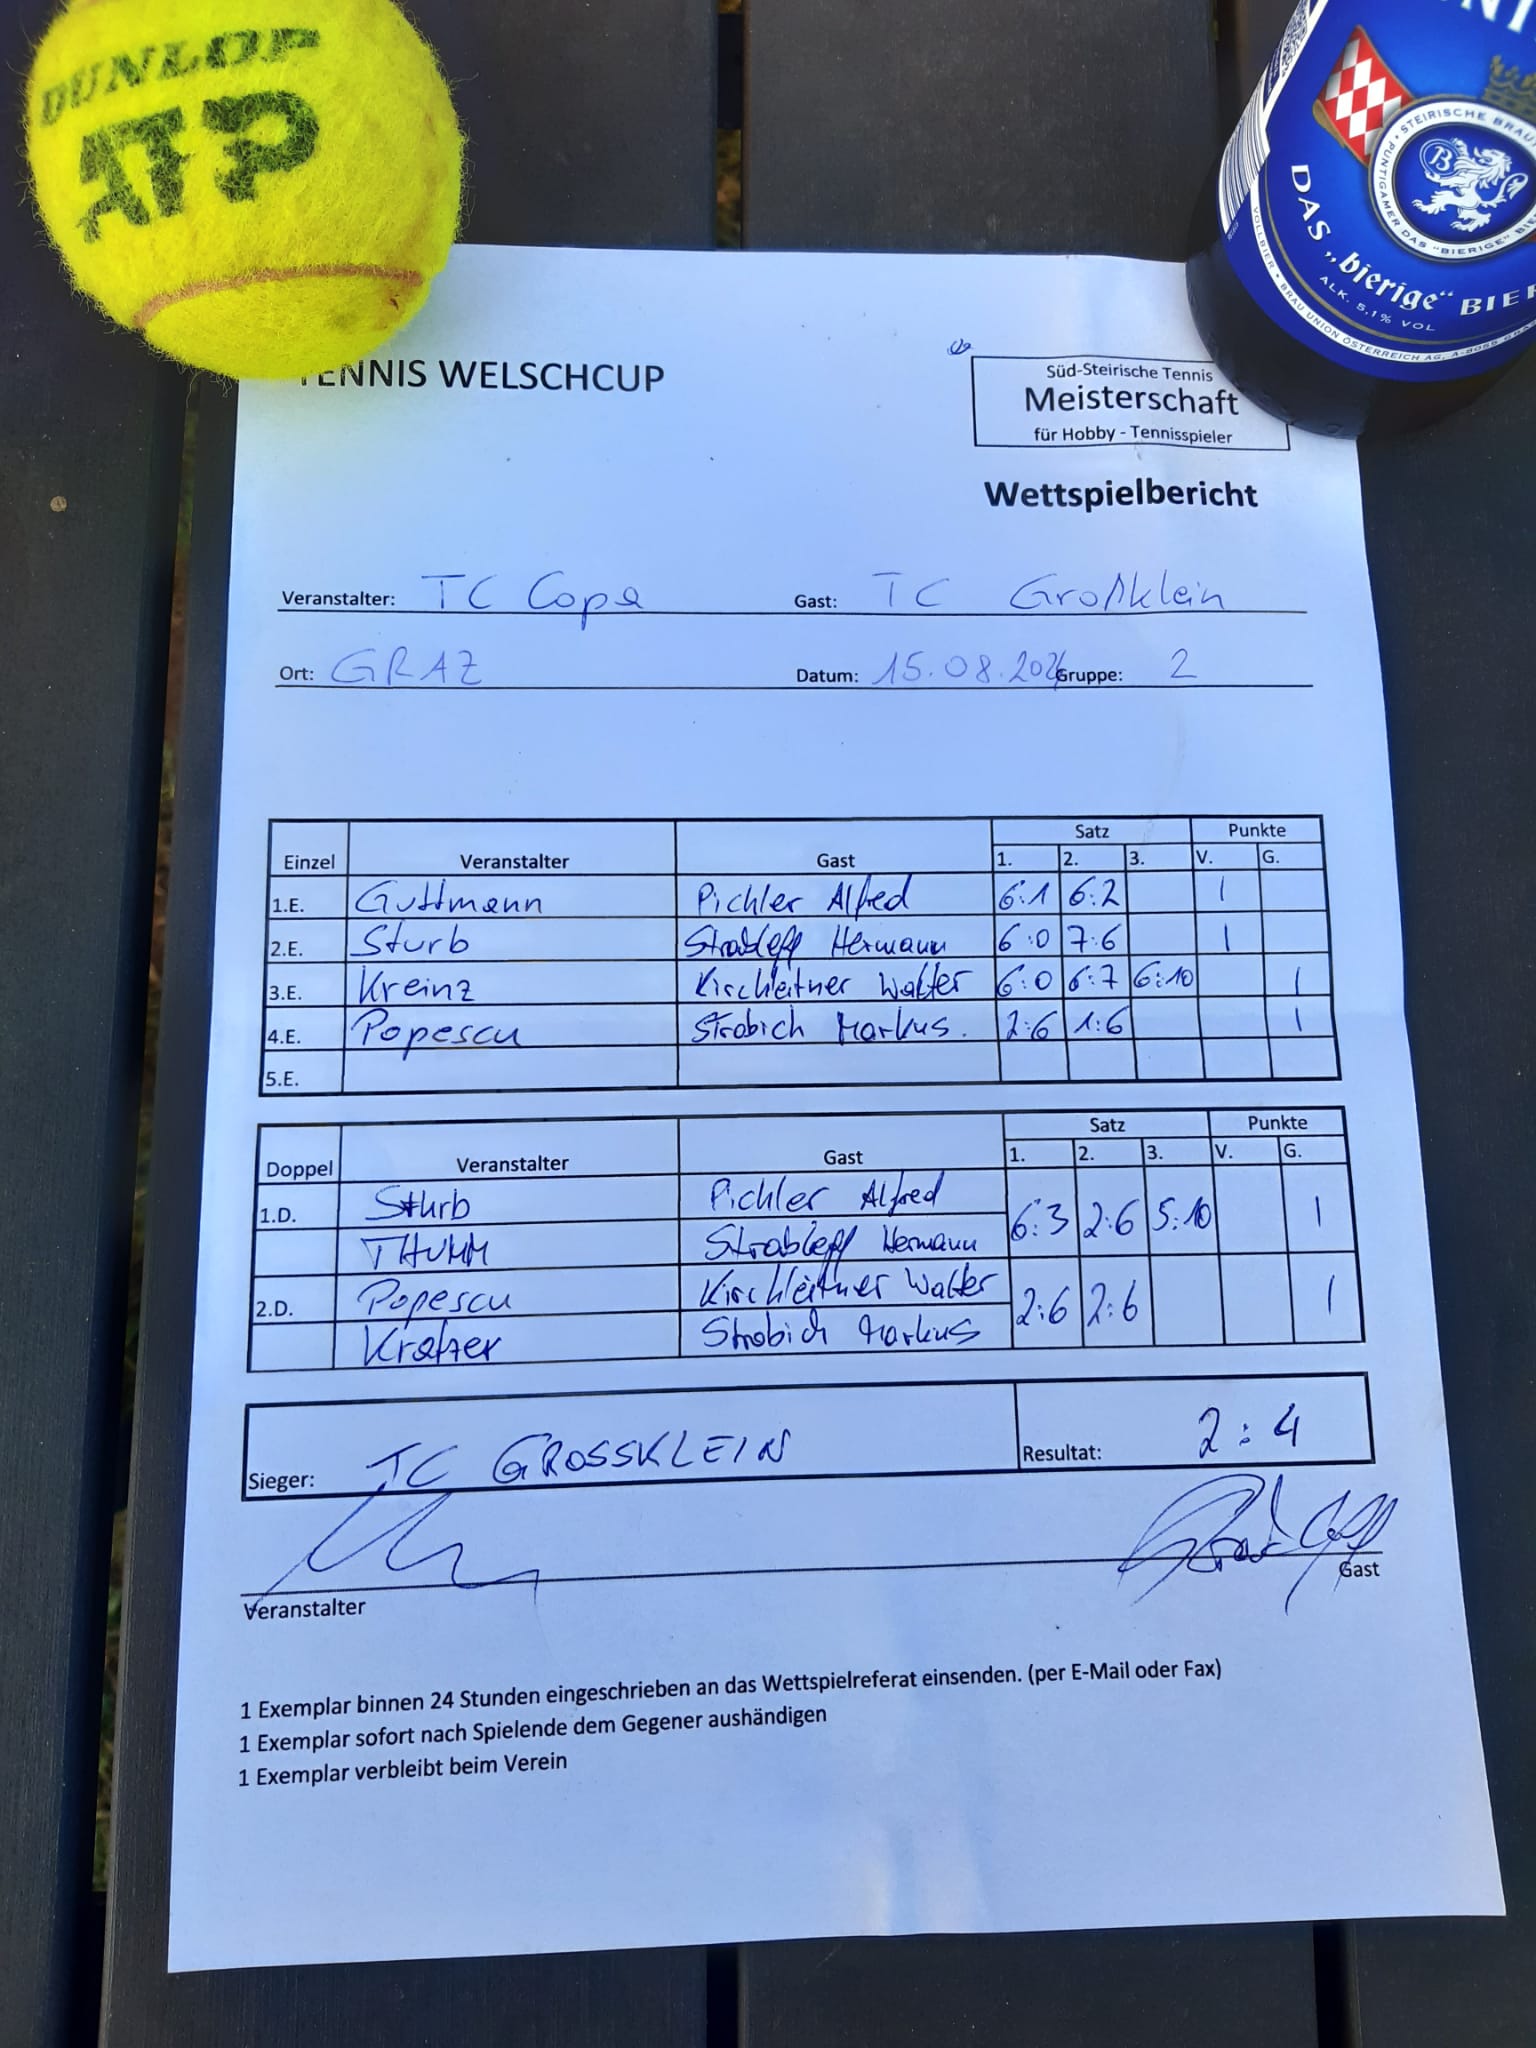 DUNLOP
ATP
STEIRISCHE
PUNTIGAMER DAS "BIERIGE"
DAS „bierige“ BIER
ALK. 5,1% VOL
VOLLBIER • BRAU UNION ÖSTERREICH AG,
TENNIS WELSCHCUP
Süd-Steirische Tennis
Meisterschaft
für Hobby - Tennisspieler
Wettspielbericht
Veranstalter: TC Copa Gast: TC Großklein
Ort: GRAZ Datum: 15.08.2024 Gruppe: 2
Satz Punkte
Einzel Veranstalter Gast 1. 2. 3. V. G.
1.E. Guttmann Pichler Alfred 6:1 6:2 1
2.E. Sturb Strableg Hermann 6:0 7:6 1
3.E. Kreinz Kirchleitner Walter 6:0 6:7 6:10 1
4.E. Popescu Strobich Markus. 2:6 1:6 1
5.E.
Satz Punkte
Doppel Veranstalter Gast 1. 2. 3. V. G.
1.D. Sturb Pichler Alfred 6:3 2:6 5:10 1
THUMM Hermann
2.D. Popescu Kirchleitner Walter 2:6 2:6 1
Kratzer Strobich Markus
Sieger: TC GROSSKLEIN Resultat: 2:4
Veranstalter Gast
1 Exemplar binnen 24 Stunden eingeschrieben an das Wettspielreferat einsenden. (per E-Mail oder Fax)
1 Exemplar sofort nach Spielende dem Gegener aushändigen
1 Exemplar verbleibt beim Verein